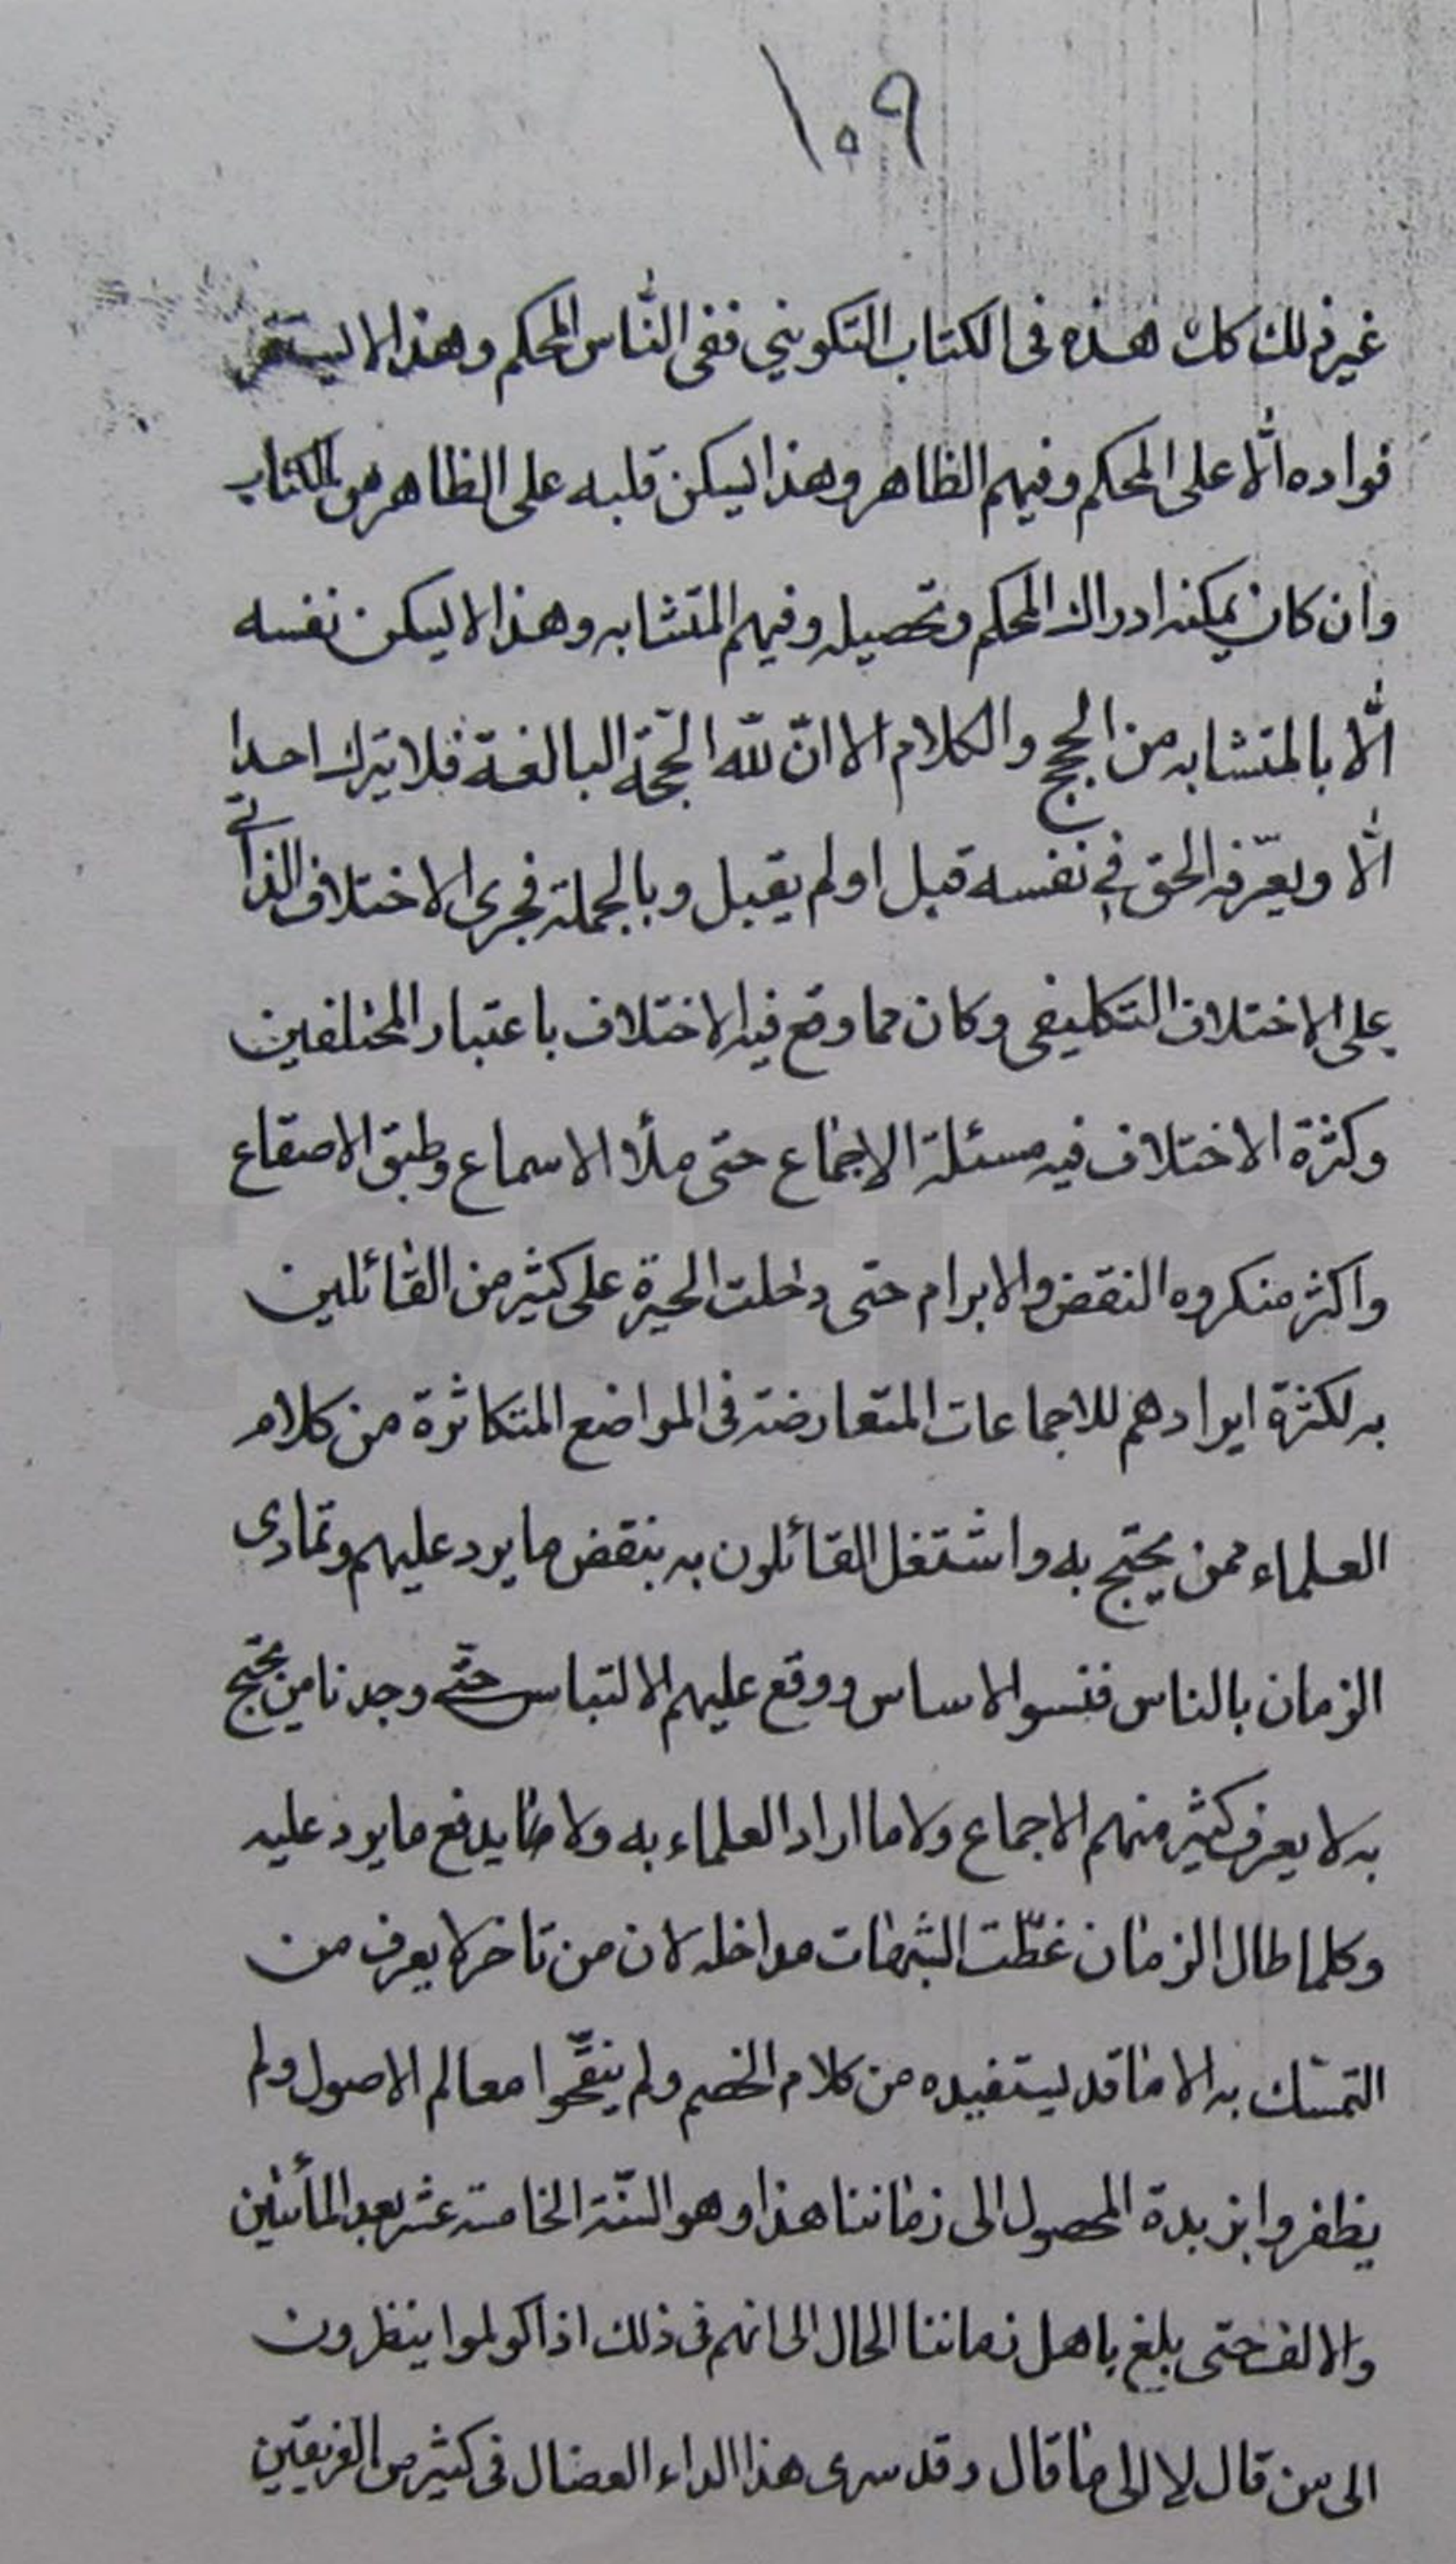 ١٠٩
غير ذلك كل هذه فى الكتاب التكويني ففى النّاس المحكم وهذا لا يستقر
فواده الّا على المحكم وفيهم الظاهر وهذا يسكن قلبه على الظاهر من الكتاب
وان كان يمكنه ادراك المحكم وتحصيله وفيهم المتشابه وهذا لا يسكن نفسه
الّا بالمتشابه من الحجج والكلام الا انّ للّه الحجّة البالغة فلا يترك احدا
الّا ويعرّفه الحق في نفسه قبل او لم يقبل وبالجملة فجرى الاختلاف الذاتي
على الاختلاف التكليفى وكان مما وقع فيه الاختلاف باعتبار المختلفين
وكثرة الاختلاف فيه مسئلة الاجماع حتى ملأ الاسماع وطبق الاصقاع
واكثر منكروه النقض والابرام حتى دخلت الحيرة على كثير من القائلين
به لكثرة ايرادهم للاجماعات المتعارضة فى المواضع المتكاثرة من كلام
العلماء ممن يحتج به واشتغل القائلون به بنقض ما يرد عليهم وتمادى
الزمان بالناس فنسوا الاساس ووقع عليهم الالتباس حتّى وجدنا من يحتج
به لا يعرف كثير منهم الاجماع ولا ما اراد العلماء به ولا ما يدفع ما يرد عليه
وكلما طال الزمان غطّت الشبهات مداخله لان من تاخر لا يعرف من
التمسّك به الا ما قد يستفيده من كلام الخصم ولم ينقّحوا معالم الاصول ولم
يظفروا بزبدة المحصول الى زماننا هذا وهو السّنة الخامسة عشر بعد المأتين
والالف حتى بلغ باهل زماننا الحال الى انهم فى ذلك اذا كولموا ينظرون
الى من قال لا الى ما قال وقد سرى هذا الداء العضال فى كثير من الفريقين